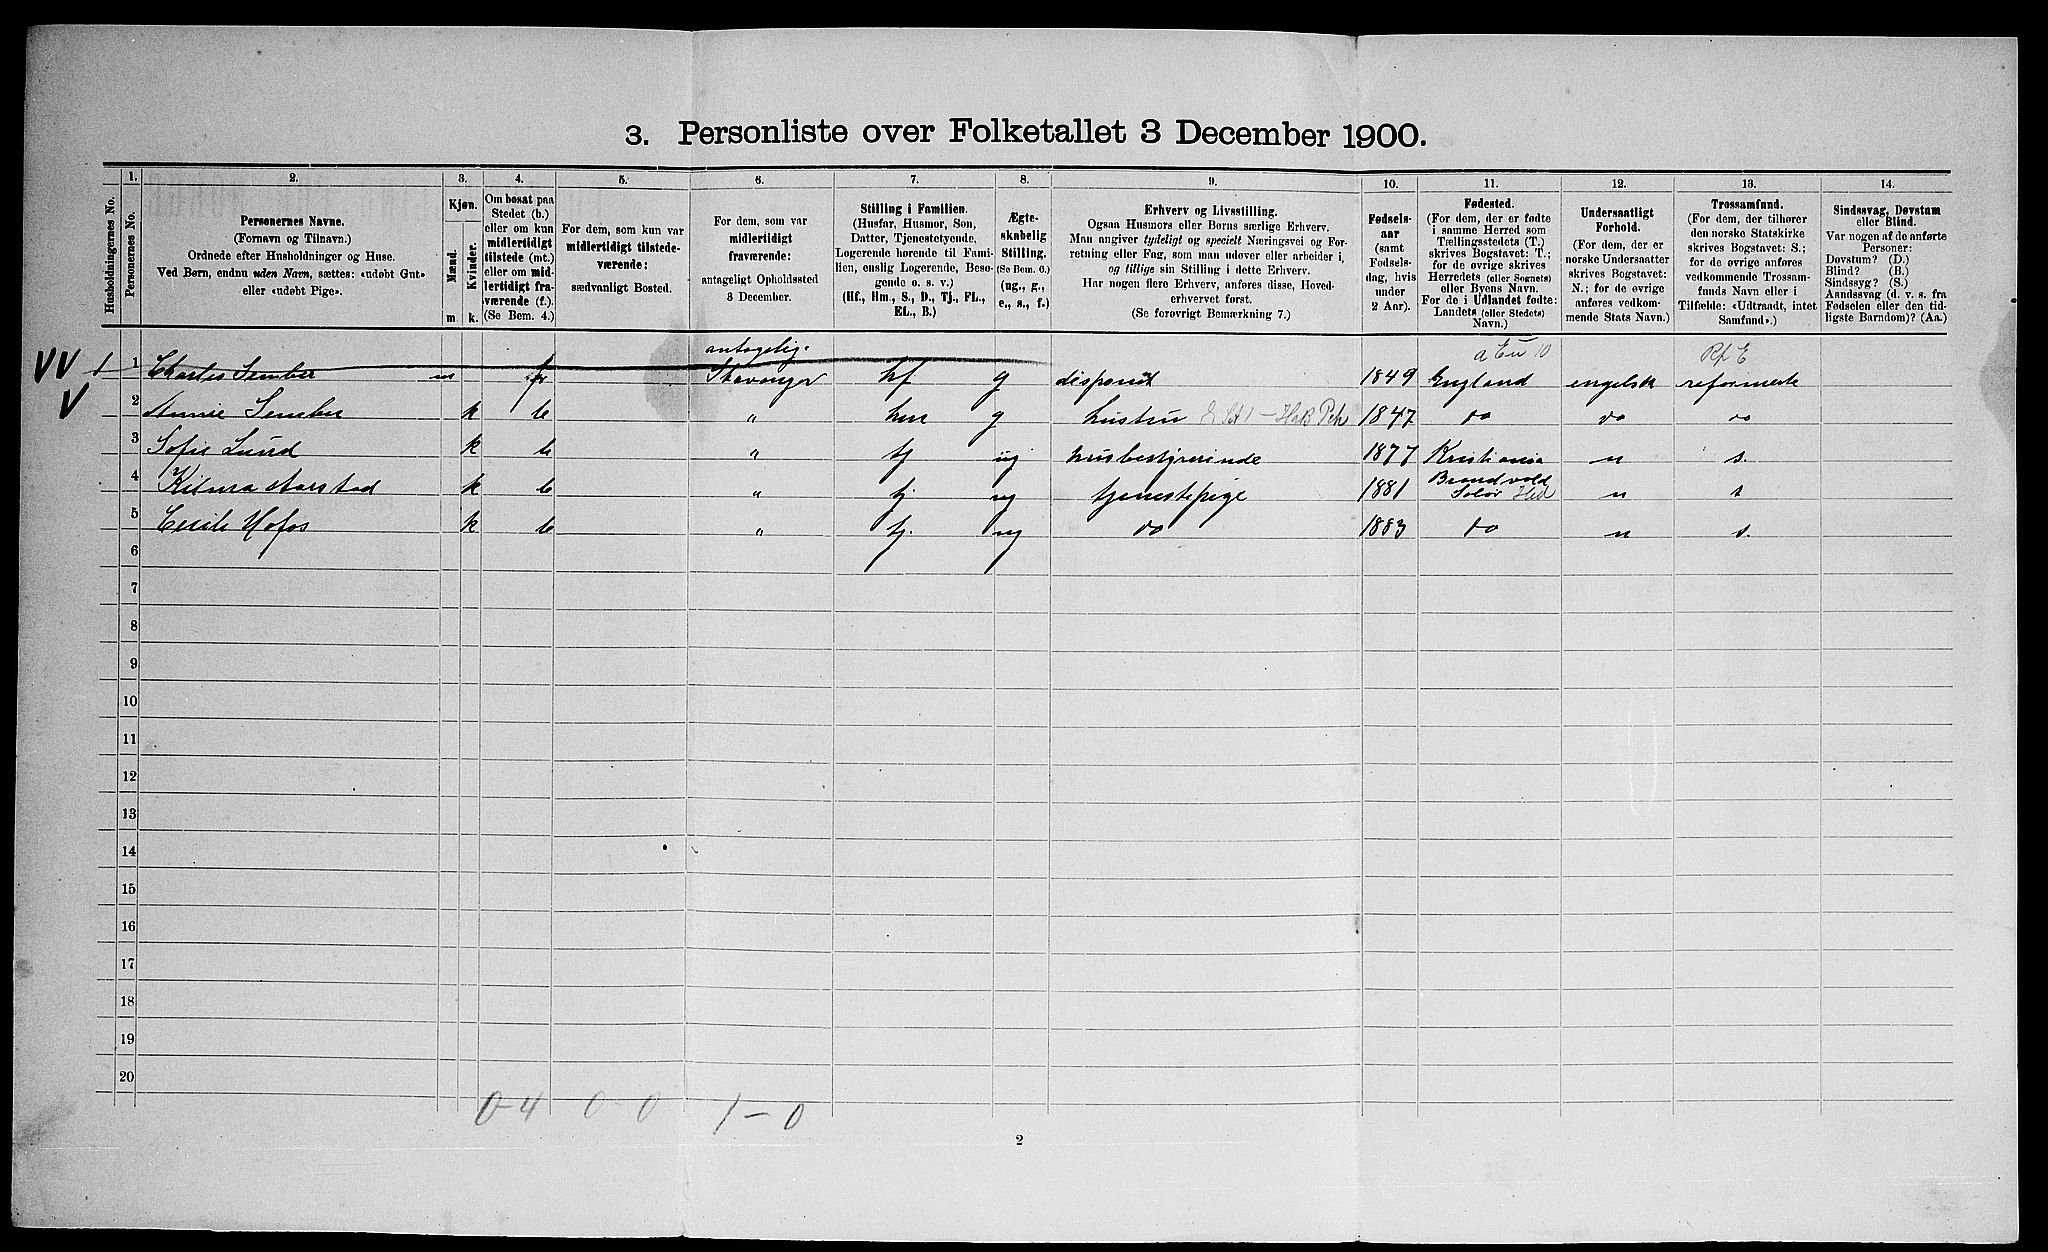 3. Personliste over Folketallet 3 December 1900.
1. 2. 3. 4. 5. 6. 7. 8. 9. 10. 11. 12. 13. 14.
Husholdningernes No.
Personernes No.
Personernes Navne.
(Fornavn og Tilnavn.)
Ordnede efter Husholdninger og Huse.
Ved Børn, endnu uden Navn, sættes: «udøbt Gut»
eller «udøbt Pige».
Kjøn.
Mænd.
Kvinder.
m. k.
Om bosat paa
Stedet (b.)
eller om kun
midlertidigt
tilstede (mt.)
eller om mid-
lertidigt fra-
værende (f.).
(Se Bem. 4.)
For dem, som kun var
midlertidigt tilstede-
værende:
sædvanligt Bosted.
For dem, som var
midlertidigt
fraværende:
antageligt Opholdssted
3 December.
Stilling i Familien.
(Husfar, Husmor, Søn,
Datter, Tjenestetyende,
Logerende hørende til Fami-
lien, enslig Logerende, Besø-
gende o. s. v.)
(Hf., Hm., S., D., Tj., FL.,
EL., B.)
Ægte-
skabelig
Stilling.
(Se Bem. 6.)
(ug., g.,
e., s., f.)
Erhverv og Livsstilling.
Ogsaa Husmors eller Børns særlige Erhverv.
Man angiver tydeligt og specielt Næringsvei og For-
retning eller Fag, som man udøver eller arbeider i,
og tillige sin Stilling i dette Erhverv.
Har nogen flere Erhverv, anføres disse, Hoved-
erhvervet først.
(Se forøvrigt Bemærkning 7.)
Fødsels-
aar
(samt
Fødsels-
dag, hvis
under
2 Aar).
Fødested.
(For dem, der er fødte
i samme Herred som
Tællingsstedets (T.)
skrives Bogstavet: T.;
for de øvrige skrives
Herredets (eller Sognets)
eller Byens Navn.
For de i Udlandet fødte:
Landets (eller Stedets)
Navn.)
Undersaatligt
Forhold.
(For dem, der er
norske Undersaatter
skrives Bogstavet:
N.; for de øvrige
anføres vedkom-
mende Stats Navn.)
Trossamfund.
(For dem, der tilhører
den norske Statskirke
skrives Bogstavet: S.;
for de øvrige anføres
vedkommende Trossam-
funds Navn eller i
Tilfælde: «Udtraadt, intet
Samfund».)
Sindssvag, Døvstum
eller Blind.
Var nogen af de anførte
Personer:
Døvstum? (D.)
Blind? (B.)
Sindssyg? (S.)
Aandssvag (d. v. s. fra
Fødselen eller den tid-
ligste Barndom)? (Aa.)
antagelig. a Eu 10 Rf E
1 Charles Sember m f Stavanger hf g disponent 1849 England engelsk reformerte
2 Annie Sember k b " hm g hustru 1847 do do do
3 Sofie Lund k b " tj ug husbestyrerinde 1877 Kristiania n s.
Brandvold
4 Aarstad k b " tj. ug tjenestepige 1881 Solør Hed n s
5 Hofos k b " tj. ug do 1883 do n s.
6
7
8
9
10
11
12
13
14
15
16
17
18
19
20
0-4 0-0 1-0
2